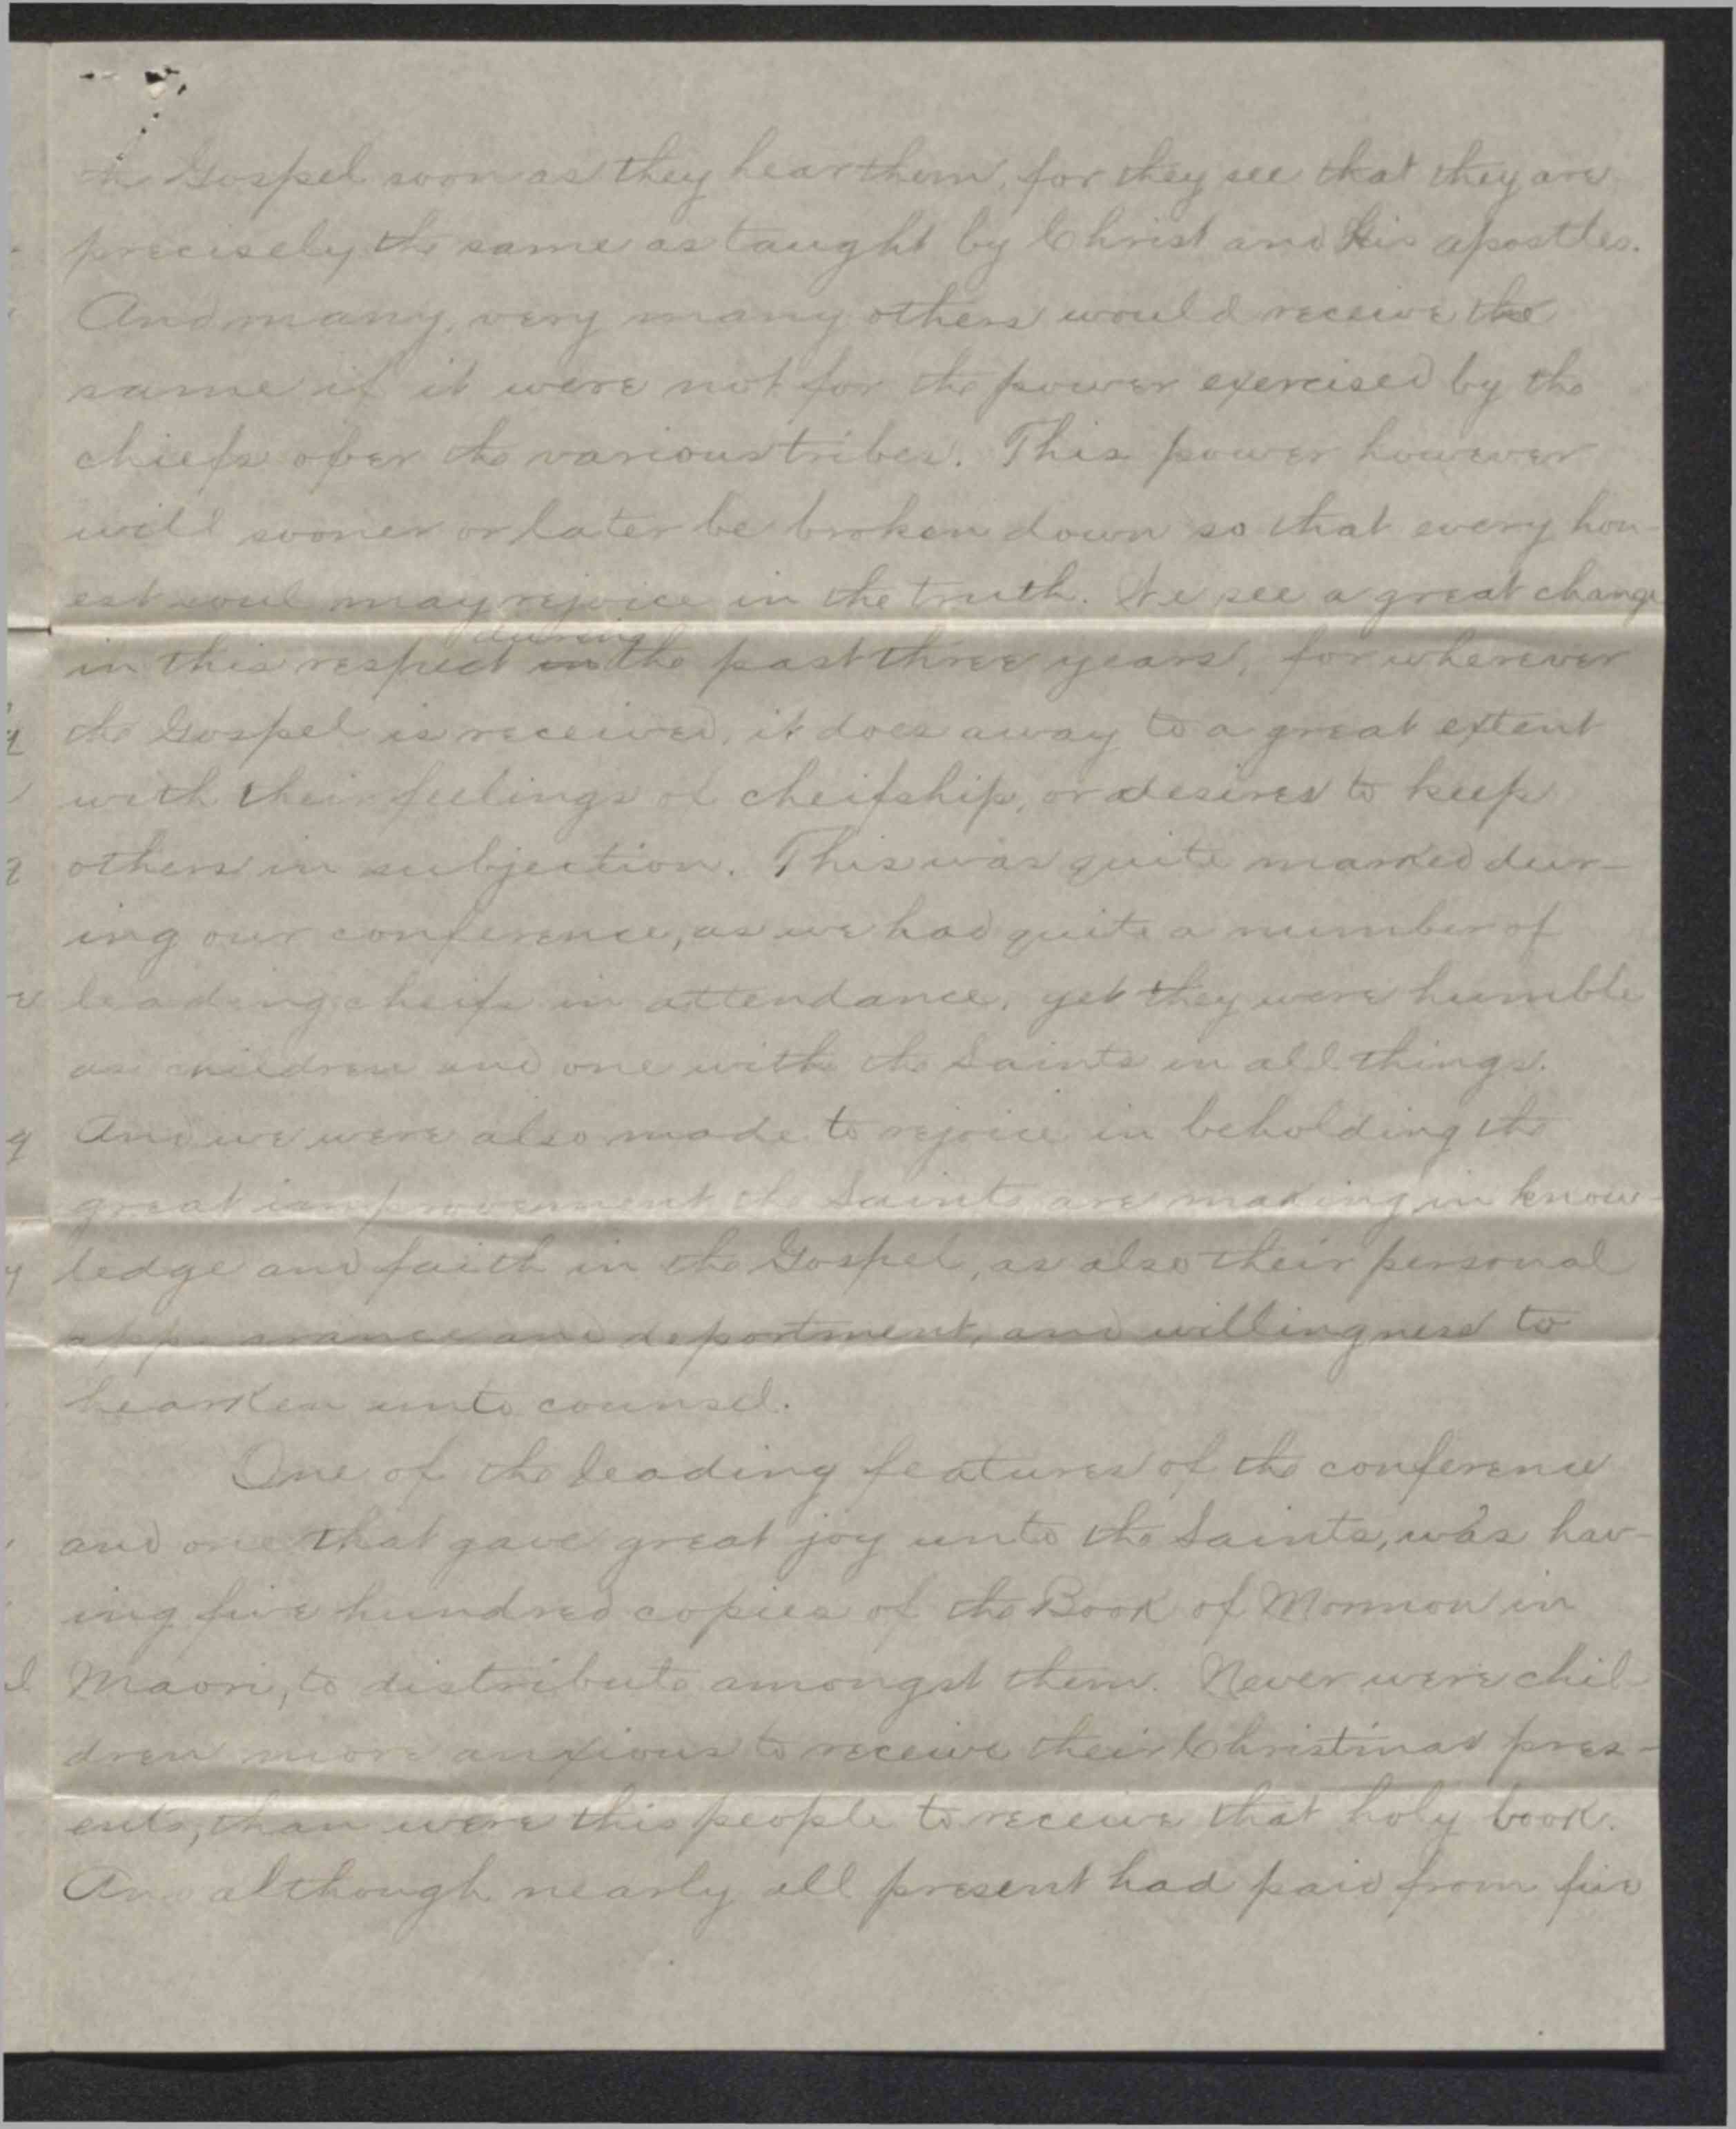 the Gospel soon as they hear them, for they see that they are
precisely the same as taught by Christ and His apostles.
And many, very many others would receive the
same if it were not for the power exercised by the
chiefs over the various tribes. This power however
will sooner or later be broken down so that every hon-
est soul may rejoice in the truth. We see a great change
during
in this respect in the past three years, for wherever
the Gospel is received, it does away to a great extent
with their feelings of cheifship, or desires to keep
others in subjection. This was quite marked dur-
ing our conference, as we had quite a number of
leading cheifs in attendance, yet they were humble
as children and one with the Saints in all things.
And we were also made to rejoice in beholding the
great improvement the Saints are making in know-
ledge and faith in the Gospel, as also their personal
appearance and deportment, and willingness to
hearken unto counsel.
One of the leading features of the conference
and one that gave great joy unto the Saints, was hav-
ing five hundred copies of the Book of Mormon in
Maori, to distribute amongst them. Never were chil-
dren more anxious to receive their Christmas pres-
ents, than were this people to receive that holy book.
And although nearly all present had paid from five